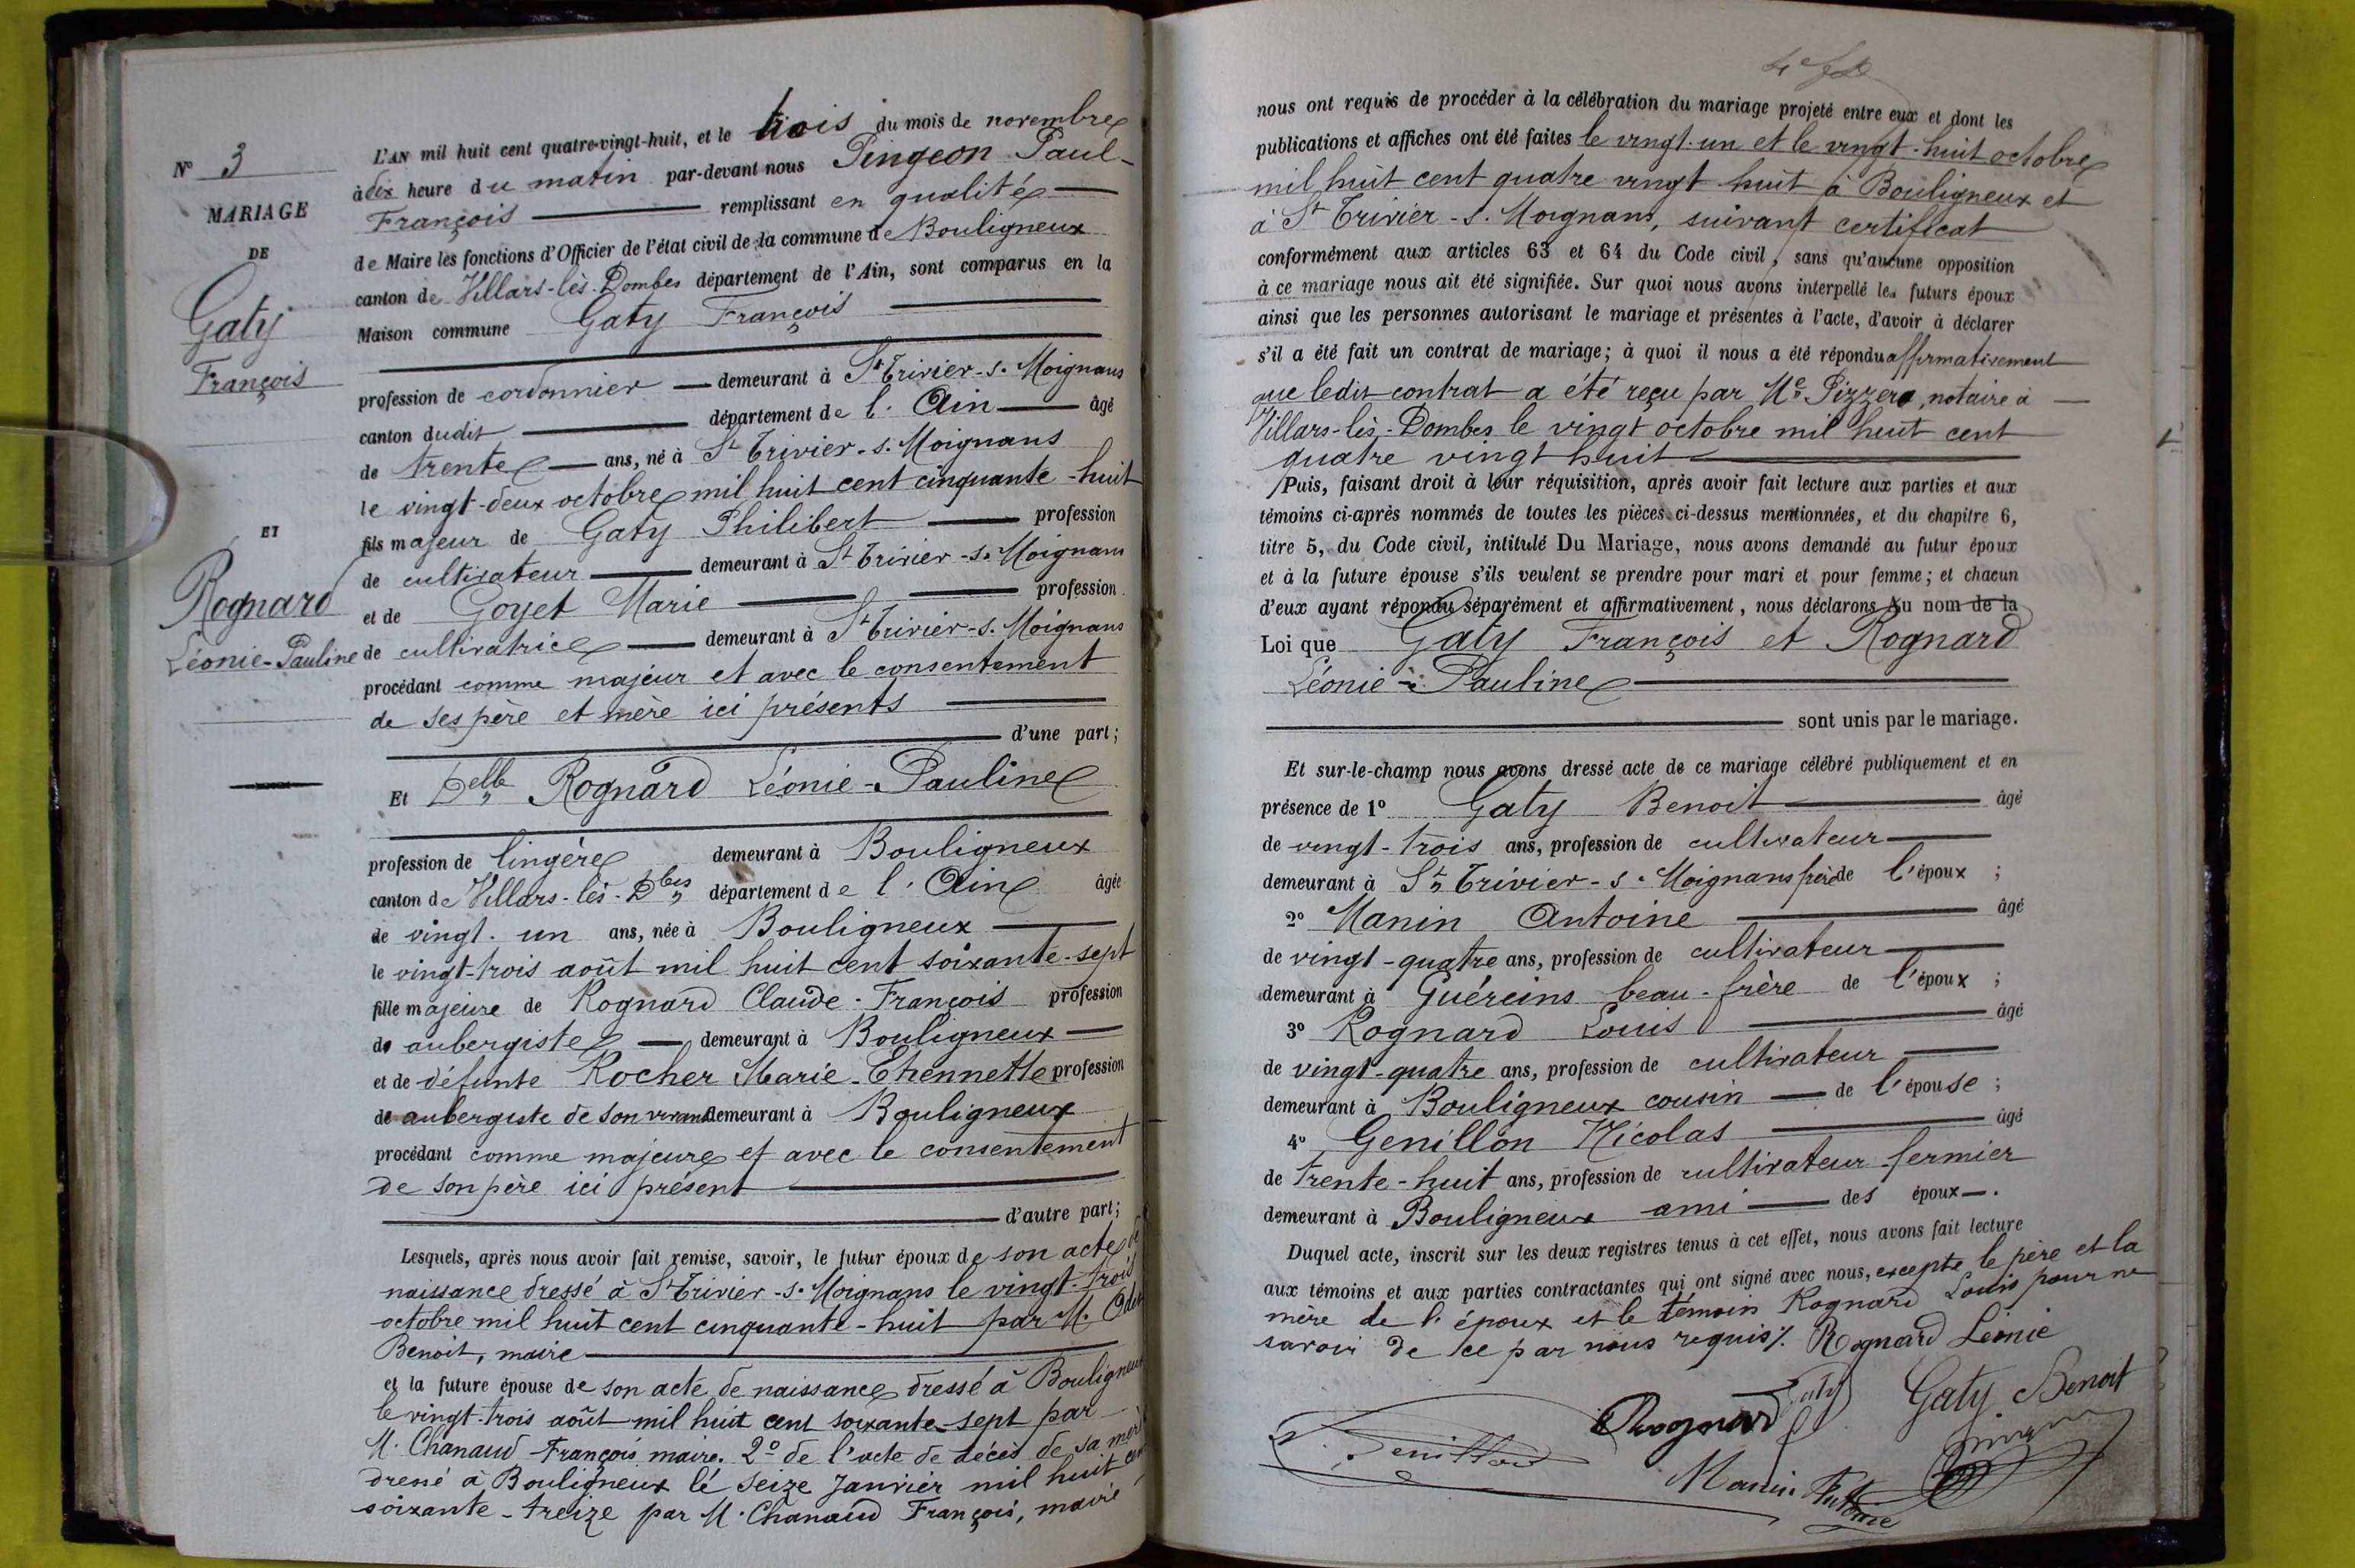 N° 3
MARIAGE
DE
Gaty
François
ET
Rognard
Léonie-Pauline
L'AN mil huit cent quatre-vingt-huit, et le trois du mois de novembre
à dix heure du matin par-devant nous Pingeon Paul-
François remplissant en qualité
de Maire les fonctions d'Officier de l'état civil de la commune de Bouligneux
canton de Villars-lès-Dombes département de l'Ain, sont comparus en la
Maison commune Gaty François
profession de cordonnier demeurant à St Trivier-s. Moignans
canton dudit département de l'Ain âgé
de trente ans, né à St Trivier-s. Moignans
le vingt-deux octobre mil huit cent cinquante-huit
fils majeur de Gaty Philibert profession
de cultivateur demeurant à St Trivier-s. Moignans
et de Goyet Marie profession
de cultivatrice demeurant à St Trivier-s. Moignans
procédant comme majeur et avec le consentement
de ses père et mère ici présents
d'une part;
Et Delle Rognard Léonie-Pauline
profession de lingère demeurant à Bouligneux
canton de Villars-lès-Dbes département de l'Ain âgée
de vingt-un ans, née à Bouligneux
le vingt-trois août mil huit cent soixante-sept
fille majeure de Rognard Claude-François profession
de aubergiste demeurant à Bouligneux
et de défunte Rocher Marie-Etiennette profession
de aubergiste de son vivant demeurant à Bouligneux
procédant comme majeure et avec le consentement
de son père ici présent
d'autre part;
Lesquels, après nous avoir fait remise, savoir, le futur époux de son acte de
naissance dressé à St Trivier-s. Moignans le vingt-trois
octobre mil huit cent cinquante-huit par M.
Benoit, maire
et la future épouse de son acte de naissance dressé à Bouligneux
le vingt-trois août mil huit cent soixante-sept par
M. Chanaud François maire. 2° de l'acte de décès de sa mère
dressé à Bouligneux le seize janvier mil huit cent
soixante-treize par M. Chanaud François, maire
nous ont requis de procéder à la célébration du mariage projeté entre eux et dont les
publications et affiches ont été faites le vingt-un et le vingt-huit octobre
mil huit cent quatre vingt huit à Bouligneux et
à St Trivier-s. Moignans, suivant certificat
conformément aux articles 63 et 64 du Code civil, sans qu'aucune opposition
à ce mariage nous ait été signifiée. Sur quoi nous avons interpellé les futurs époux
ainsi que les personnes autorisant le mariage et présentes à l'acte, d'avoir à déclarer
s'il a été fait un contrat de mariage; à quoi il nous a été répondu affirmativement
que ledit contrat a été reçu par Me Pizzera, notaire à
Villars-lès-Dombes le vingt octobre mil huit cent
quatre vingt huit
Puis, faisant droit à leur réquisition, après avoir fait lecture aux parties et aux
témoins ci-après nommés de toutes les pièces ci-dessus mentionnées, et du chapitre 6,
titre 5, du Code civil, intitulé Du Mariage, nous avons demandé au futur époux
et à la future épouse s'ils veulent se prendre pour mari et pour femme; et chacun
d'eux ayant répondu séparément et affirmativement, nous déclarons Au nom de la
Loi que Gaty François et Rognard
Léonie-Pauline
sont unis par le mariage.
Et sur-le-champ nous avons dressé acte de ce mariage célébré publiquement et en
présence de 1° Gaty Benoit âgé
de vingt-trois ans, profession de cultivateur
demeurant à St Trivier-s. Moignans frère de l'époux ;
2° Manin Antoine âgé
de vingt-quatre ans, profession de cultivateur
demeurant à Guéreins beau-frère de l'époux ;
3° Rognard Louis âgé
de vingt-quatre ans, profession de cultivateur
demeurant à Bouligneux cousin de l'épouse ;
4° Genillon Nicolas âgé
de trente-huit ans, profession de cultivateur fermier
demeurant à Bouligneux ami des époux .
Duquel acte, inscrit sur les deux registres tenus à cet effet, nous avons fait lecture
aux témoins et aux parties contractantes qui ont signé avec nous, excepté le père et la
mère de l'époux et le témoin Rognard Louis pour ne
savoir de ce par nous requis. Rognard Léonie
Gaty Gaty Benoit
Rognard
Genillon
Manin Antoine